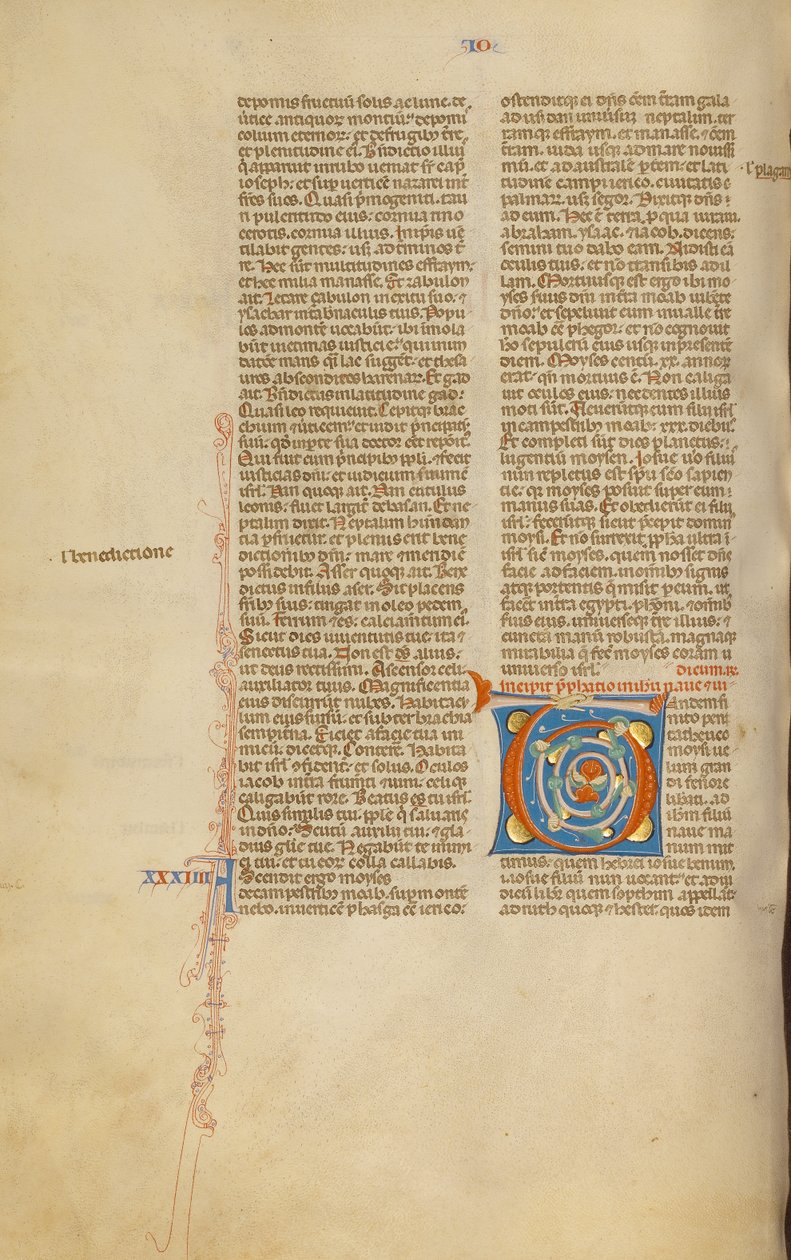 IO
de pomis fructuū solis ac lune. de
uertice antiquoꝝ montiū: de pomis
collium eternoꝝ: et de frugibꝰ t̄re,
et plenitudine ei. Bn̄dictio illiꝰ
q̄ apparuit in rubo ueniat sr̄ cap̄
ioseph: et sup uerticē nazarei int̄
fr̄es suos. Quasi p̄mogeniti tau
ri pulcritudo eius: cornua rino
cerotis. cornua illius. In ip̄is uē
tilabit gentes: usꝫ ad t̄minos t̄
re. Hee sūt multitudines effraym:
et hec milia manasse. Et zabulon
ait. Letare zabulon in exitu tuo. ⁊
ysachar in tab̄naculis tuis. Popu
los ad montē uocabūt: ibi īmola
būt uictimas iusticie: qui inun
datōē maris q̄i lac suggēt: et thesa
uros absconditos harenaꝝ. Et gad
ait. Bn̄dictus in latitudine gad:
Quasi leo requieuit. Cepitqꝫ brac
chium ⁊ uerticem: et uidit p̄ncipatū
suū: qđ in p̄te sua doctor eēt repoīt.
Qui fuit cum p̄ncipibꝰ ppli. ⁊ fecit
iusticias dn̄i: et iudicium suum cū
isrl̄. Dan quoqꝫ ait. Dan catulus
leonis: fluet largit̄ de basan. Et ne
ptalim dixit. Neptalim habundan
tia p̄fruetur: et plenus erit bene
dictionibꝰ dn̄i: mare ⁊ meridiē
possidebit. Asser quoqꝫ ait. Bene
dictus in filiis aser. Sit placens
fr̄ibꝰ suis: tingat in oleo pedem
suū. Ferrum ⁊ es: calciamtum ei.
Sicut dies iuuentutis tue: ita ⁊
senectus tua. Non est ds̄ alius:
ut deus rectissimi. Ascensor celi:
auxiliator tuus. Magnificentia
eius discurrūt nubes. Habitacu
lum eius sursū: et subter brachia
sempitna. Eiciet a facie tua ini
micū: dicetqꝫ. Conterē. Habita
bit isrl̄ ⁊fidēt: et solus. Oculos
iacob in t̄ra frumti ⁊ uini: celiqꝫ
caligabūt rore. Beatus es tu isrl̄.
Quis similis tui. pple qi saluaris
in dn̄o: Scutū auxilii tui: ⁊ gla
dius glīe tue. Negabūt te inimi
ci tui: et tu eoꝝ colla calcabis.
XXXIIII Ascendit ergo moyses
de campestribꝰ moab. sup montē
nebo. in uerticē phasga cō ierico:
l' benedictione
ostenditqꝫ ei dn̄s oēm t̄ram gala
ad usꝫ dan uniūsūqꝫ neptalim. ter
ramqꝫ effraym. et manasse. ⁊ oēm
t̄ram. iuda usqꝫ ad mare nouissi
mū. et ad australē p̄tem: et lati
tudinē campi ierico. ciuitatis
palmaꝝ. usꝫ segor. Dixitqꝫ dn̄s
ad eum. Hec ē terra p qua iuraui.
abraham. ysaac. ⁊ iacob. dicens:
semini tuo dabo eam. Uidisti eā
oculis tuis: et nō transibis ad il
lam. Mortuusqꝫ est ergo ibi mo
yses s̄uus dn̄i in t̄ra moab iubēte
dn̄o: et sepeliuit eum in ualle t̄re
moab cō phegor: et nō cognouit
hō sepulcrū eius usqꝫ in p̄sentē
diem. Moyses centū .xx. annoꝝ
erat. qn̄ mortuus ē. Non caliga
uit oculus eius: nec dentes illius
moti sūt. Fleueruntqꝫ eum filii isrl̄
in campestribꝰ moab: xxx. diebus.
Et completi sūt dies planctus:
lugentiū moysen. Iosue uō filiꝰ
nun repletus est spū scō sapien
tie. qꝛ moyses posuit super eum
manus suas. Et obedierūt ei filii
isrl̄: feceruntqꝫ sicut p̄cepit dominꝰ
moysi. Et nō surrexit ppha ultra ī
isrl̄ sic̄ moyses. quem nosset dn̄s
facie ad faciem. in omibꝰ signis
atqꝫ portentis q̄ misit p eum. ut
facēt in t̄ra egypti. phāoi. ⁊ omibꝰ
s̄uis eius. uniuerseqꝫ t̄re illius: ⁊
cuncta manū robustā. magnaqꝫ
mirabilia q̄ fec̄ moyses coram u
niuerso isrl̄.
l' plagam
Incipit p̄phatio in librū naue ⁊ iu
dicum. ꝶ.
Tandem fi
nito pent
tatheuco
moysi ue
lum gran
di fenore
libati. ad
ibm filiū
naue ma
num mit
timus: quem hebrei iosue bennun.
i. iosue filiū nun uocant: et ad iu
dicū libꝝ. quem sopthim appellāt:
ad ruth quoqꝫ ⁊ hester. quos idem